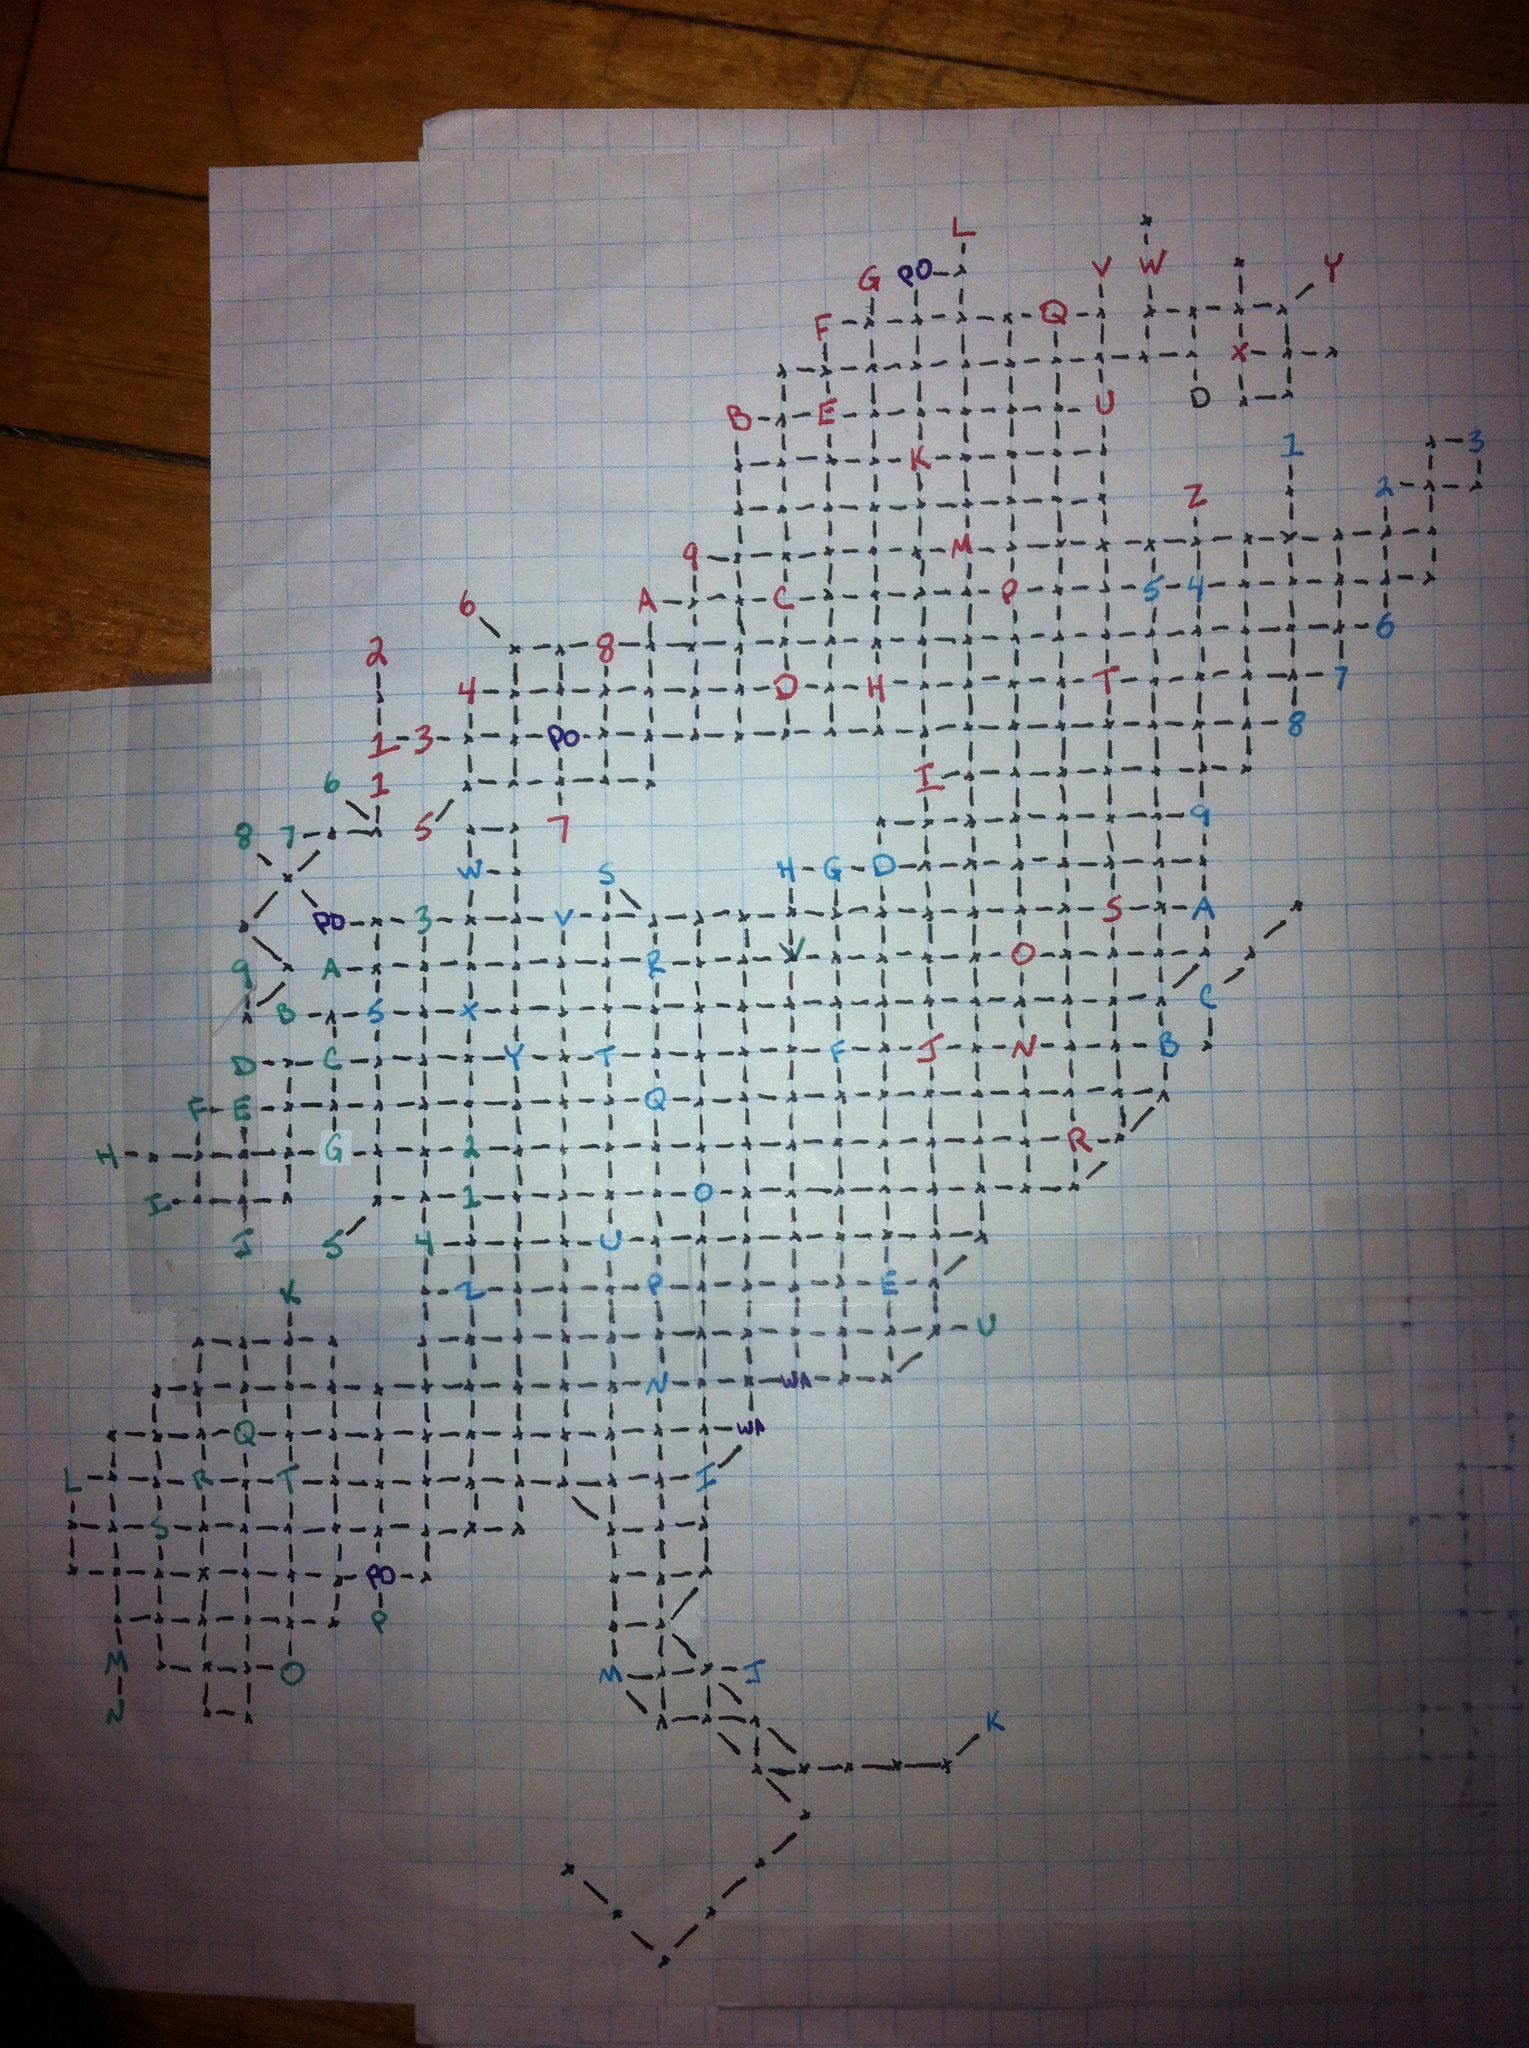 L
G PO V W Y
F Q
X
B E U D
K 1 3
Z 2
9 M
6 A C P 5 4
2 8 6
4 D H T 7
1 3 PO 8
6 1 I
8 7 5 7 9
W S H G D
PO 3 V S A
9 A R V O
B 5 X C
D C Y T F J N B
F E Q
H G 2 R
I 1 O
J 5 4 U
K Z P E
U
N WA
Q WA
L R T I
S
PO
P
M O M J
N K